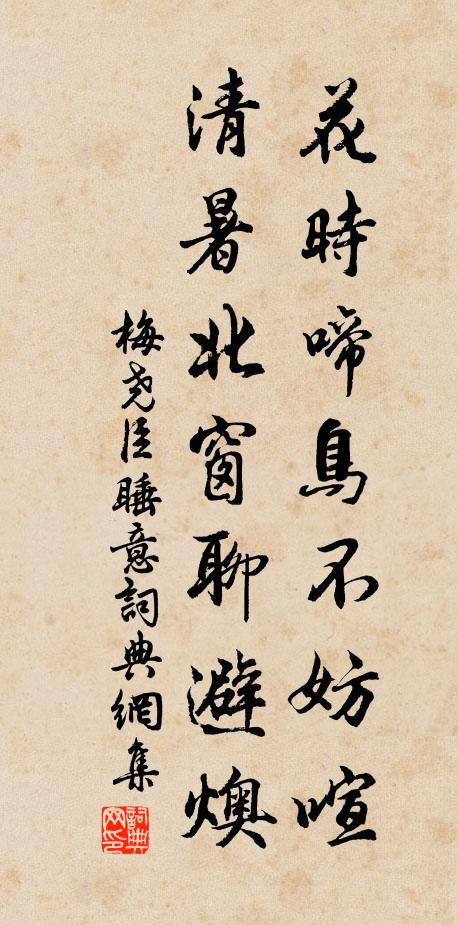 花時啼鳥不妨喧
清暑北窗聊避燠
梅尧臣睡意詞典網集
詞典网印